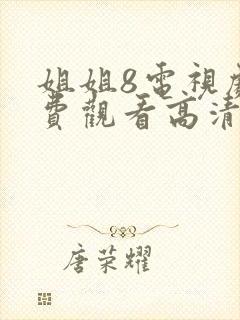 姐姐8電視
費觀看高清
唐荣耀